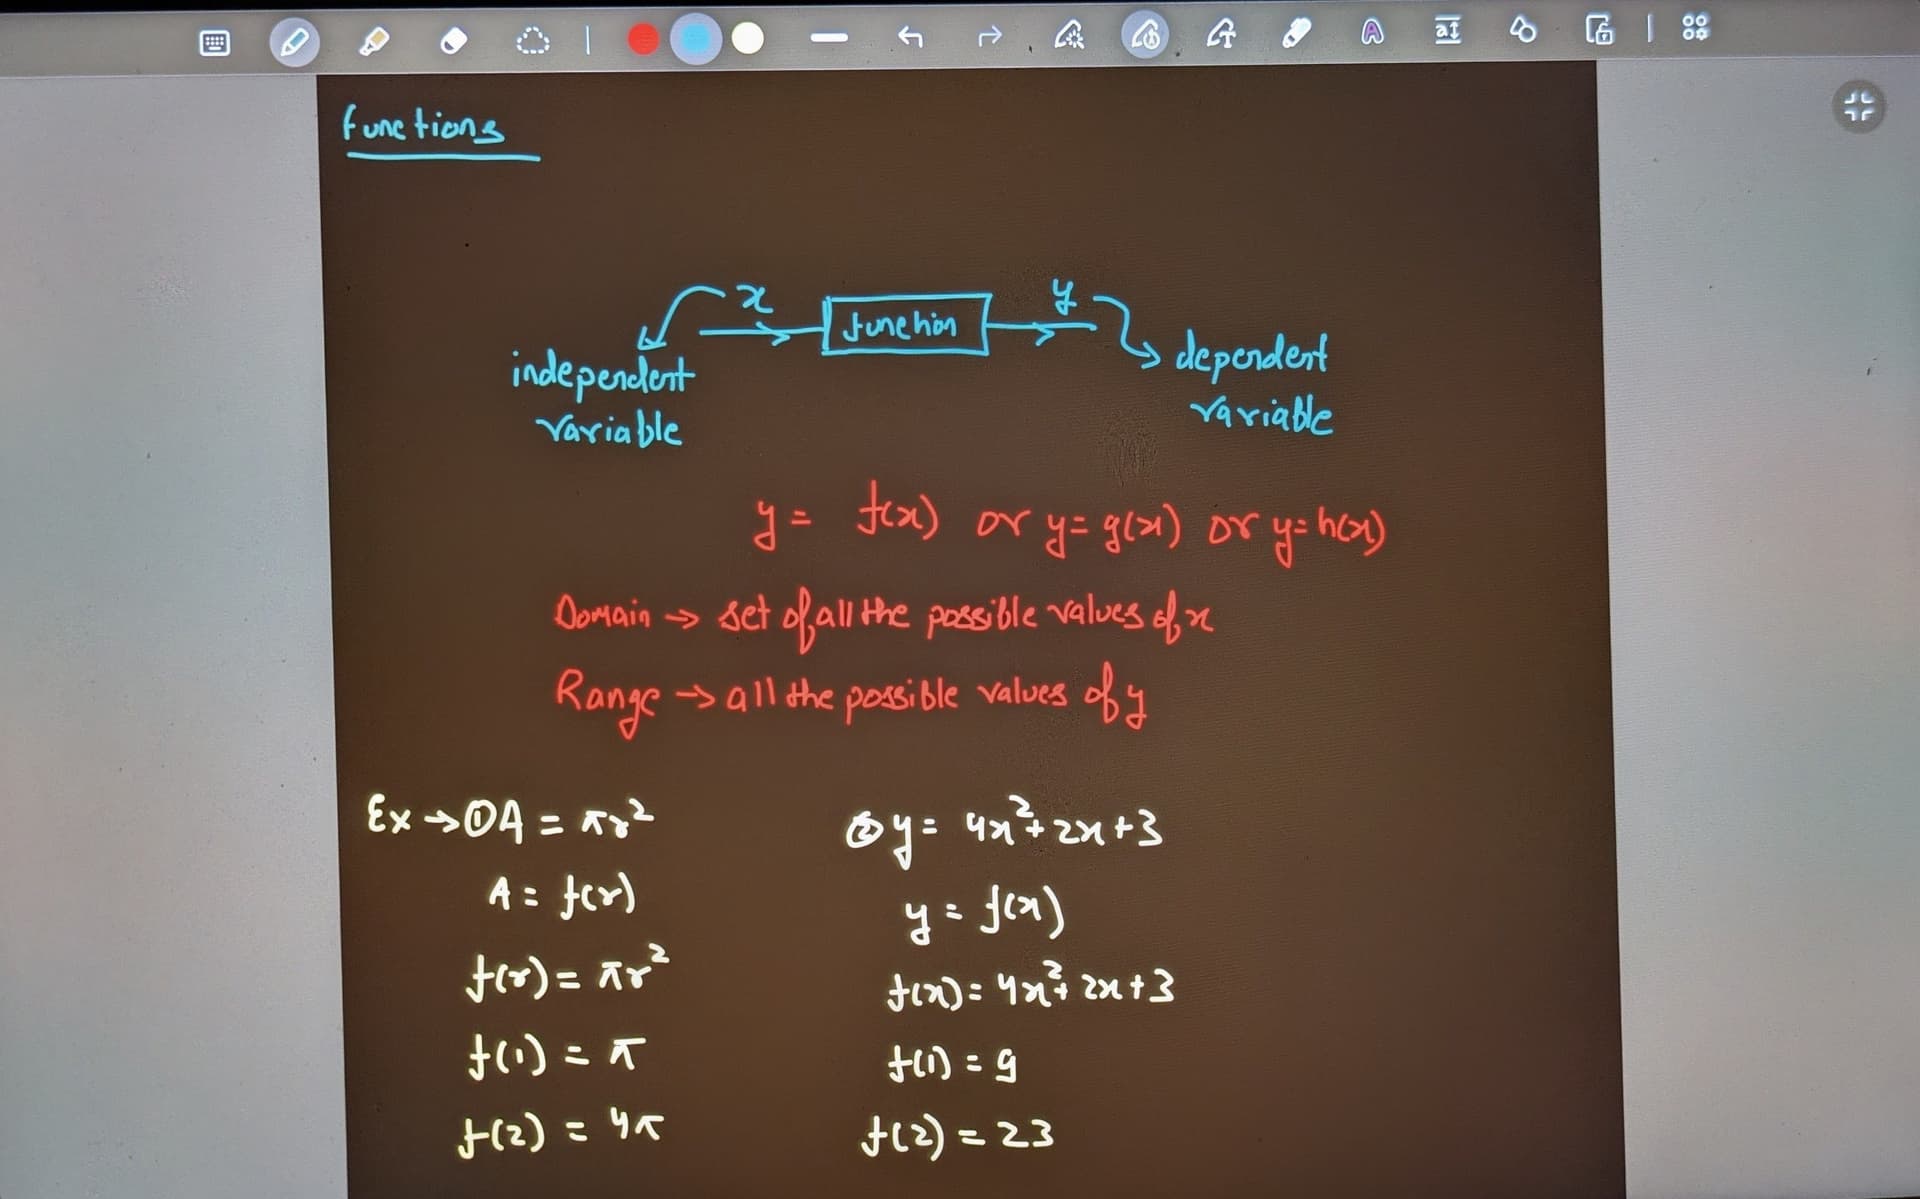 functions
x function y
independent variable
dependent variable
y = f(x) or y = g(x) or y = h(x)
Domain → set of all the possible values of x
Range → all the possible values of y
Ex → ① A = πr²
A = f(r)
f(r) = πr²
f(1) = π
f(2) = 4π
② y = 4x² + 2x + 3
y = f(x)
f(x) = 4x² + 2x + 3
f(1) = 9
f(2) = 23